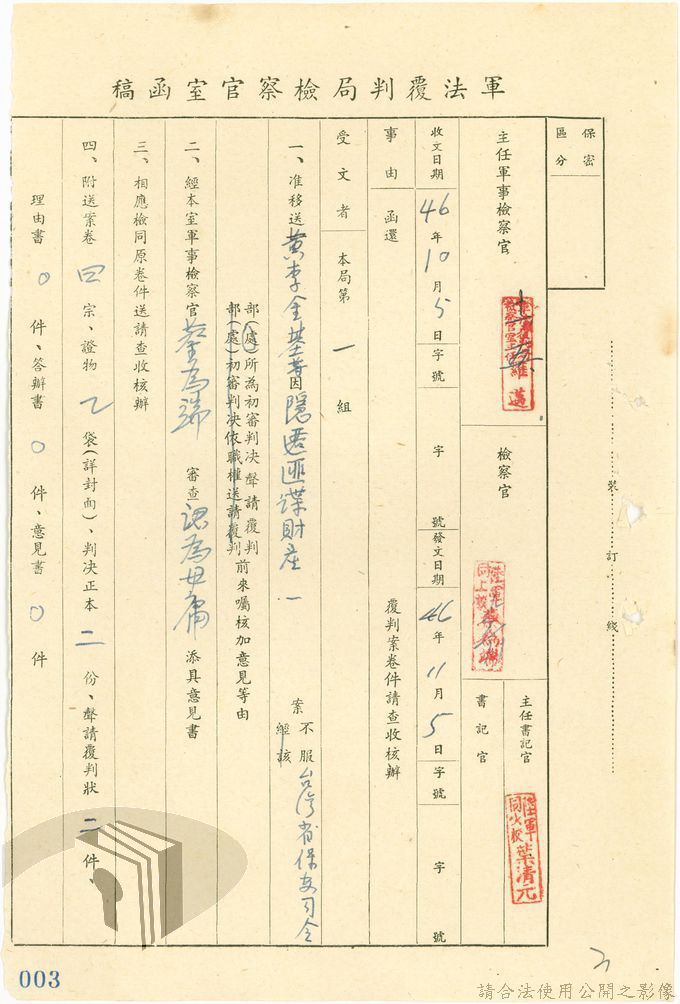 軍法覆判局檢察官室函稿
保密區分
主任軍事檢察官
檢察官
主任書記官
書記官
陸軍
葉清元
收文日期 46年10月5日 字號 字 號
發文日期 46年11月5日 字號 字 號
事由 函還 覆判案卷件請查收核辦
受文者 本局第一組
一、准移送黃李全基等因隱匿匪諜財產一案不服經該台灣省保安司令
部(處)所為初審判決聲請覆判
部(處)初審判決依職權送請覆判
前來囑核加意見等由
二、經本室軍事檢察官蔡為瑞審查認為毋庸添具意見書
三、相應檢同原卷件送請查收核辦
四、附送案卷四宗、證物乙袋(詳封面)、判決正本二份、聲請覆判狀二件、
理由書0件、答辯書0件、意見書0件
裝訂線
003
請合法使用公開之影像